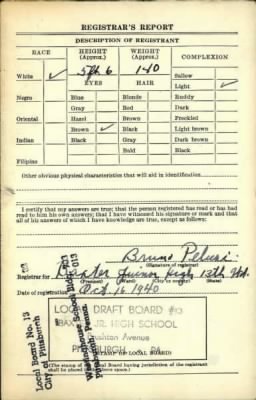 REGISTRAR'S REPORT
DESCRIPTION OF REGISTRANT
RACE HEIGHT (Approx.) WEIGHT (Approx.) COMPLEXION
White ✓ 5 ft 6 140 Sallow
EYES HAIR Light ✓
Negro Blue Blonde Ruddy
Gray Red Dark
Oriental Hazel Brown Freckled
Brown ✓ Black Light brown
Indian Black Gray Dark brown
Bald Black
Filipino
Other obvious physical characteristics that will aid in identification
I certify that my answers are true; that the person registered has read or has had
read to him his own answers; that I have witnessed his signature or mark and that
all of his answers of which I have knowledge are true, except as follows:
Bruno
(Signature of registrar)
Registrar for Baxter Junior High 13th Wd.
(Ward) (City or county) (State)
Date of registration Oct. 16 1940
LOCAL DRAFT BOARD #13
BAXTER JR. HIGH SCHOOL
Avenue
PITTSBURGH PA.
(STAMP OF LOCAL BOARD)
(The stamp of the Local Board having jurisdiction of the registrant
shall be placed in the above space.)
Local Board No. 13
City of Pittsburgh